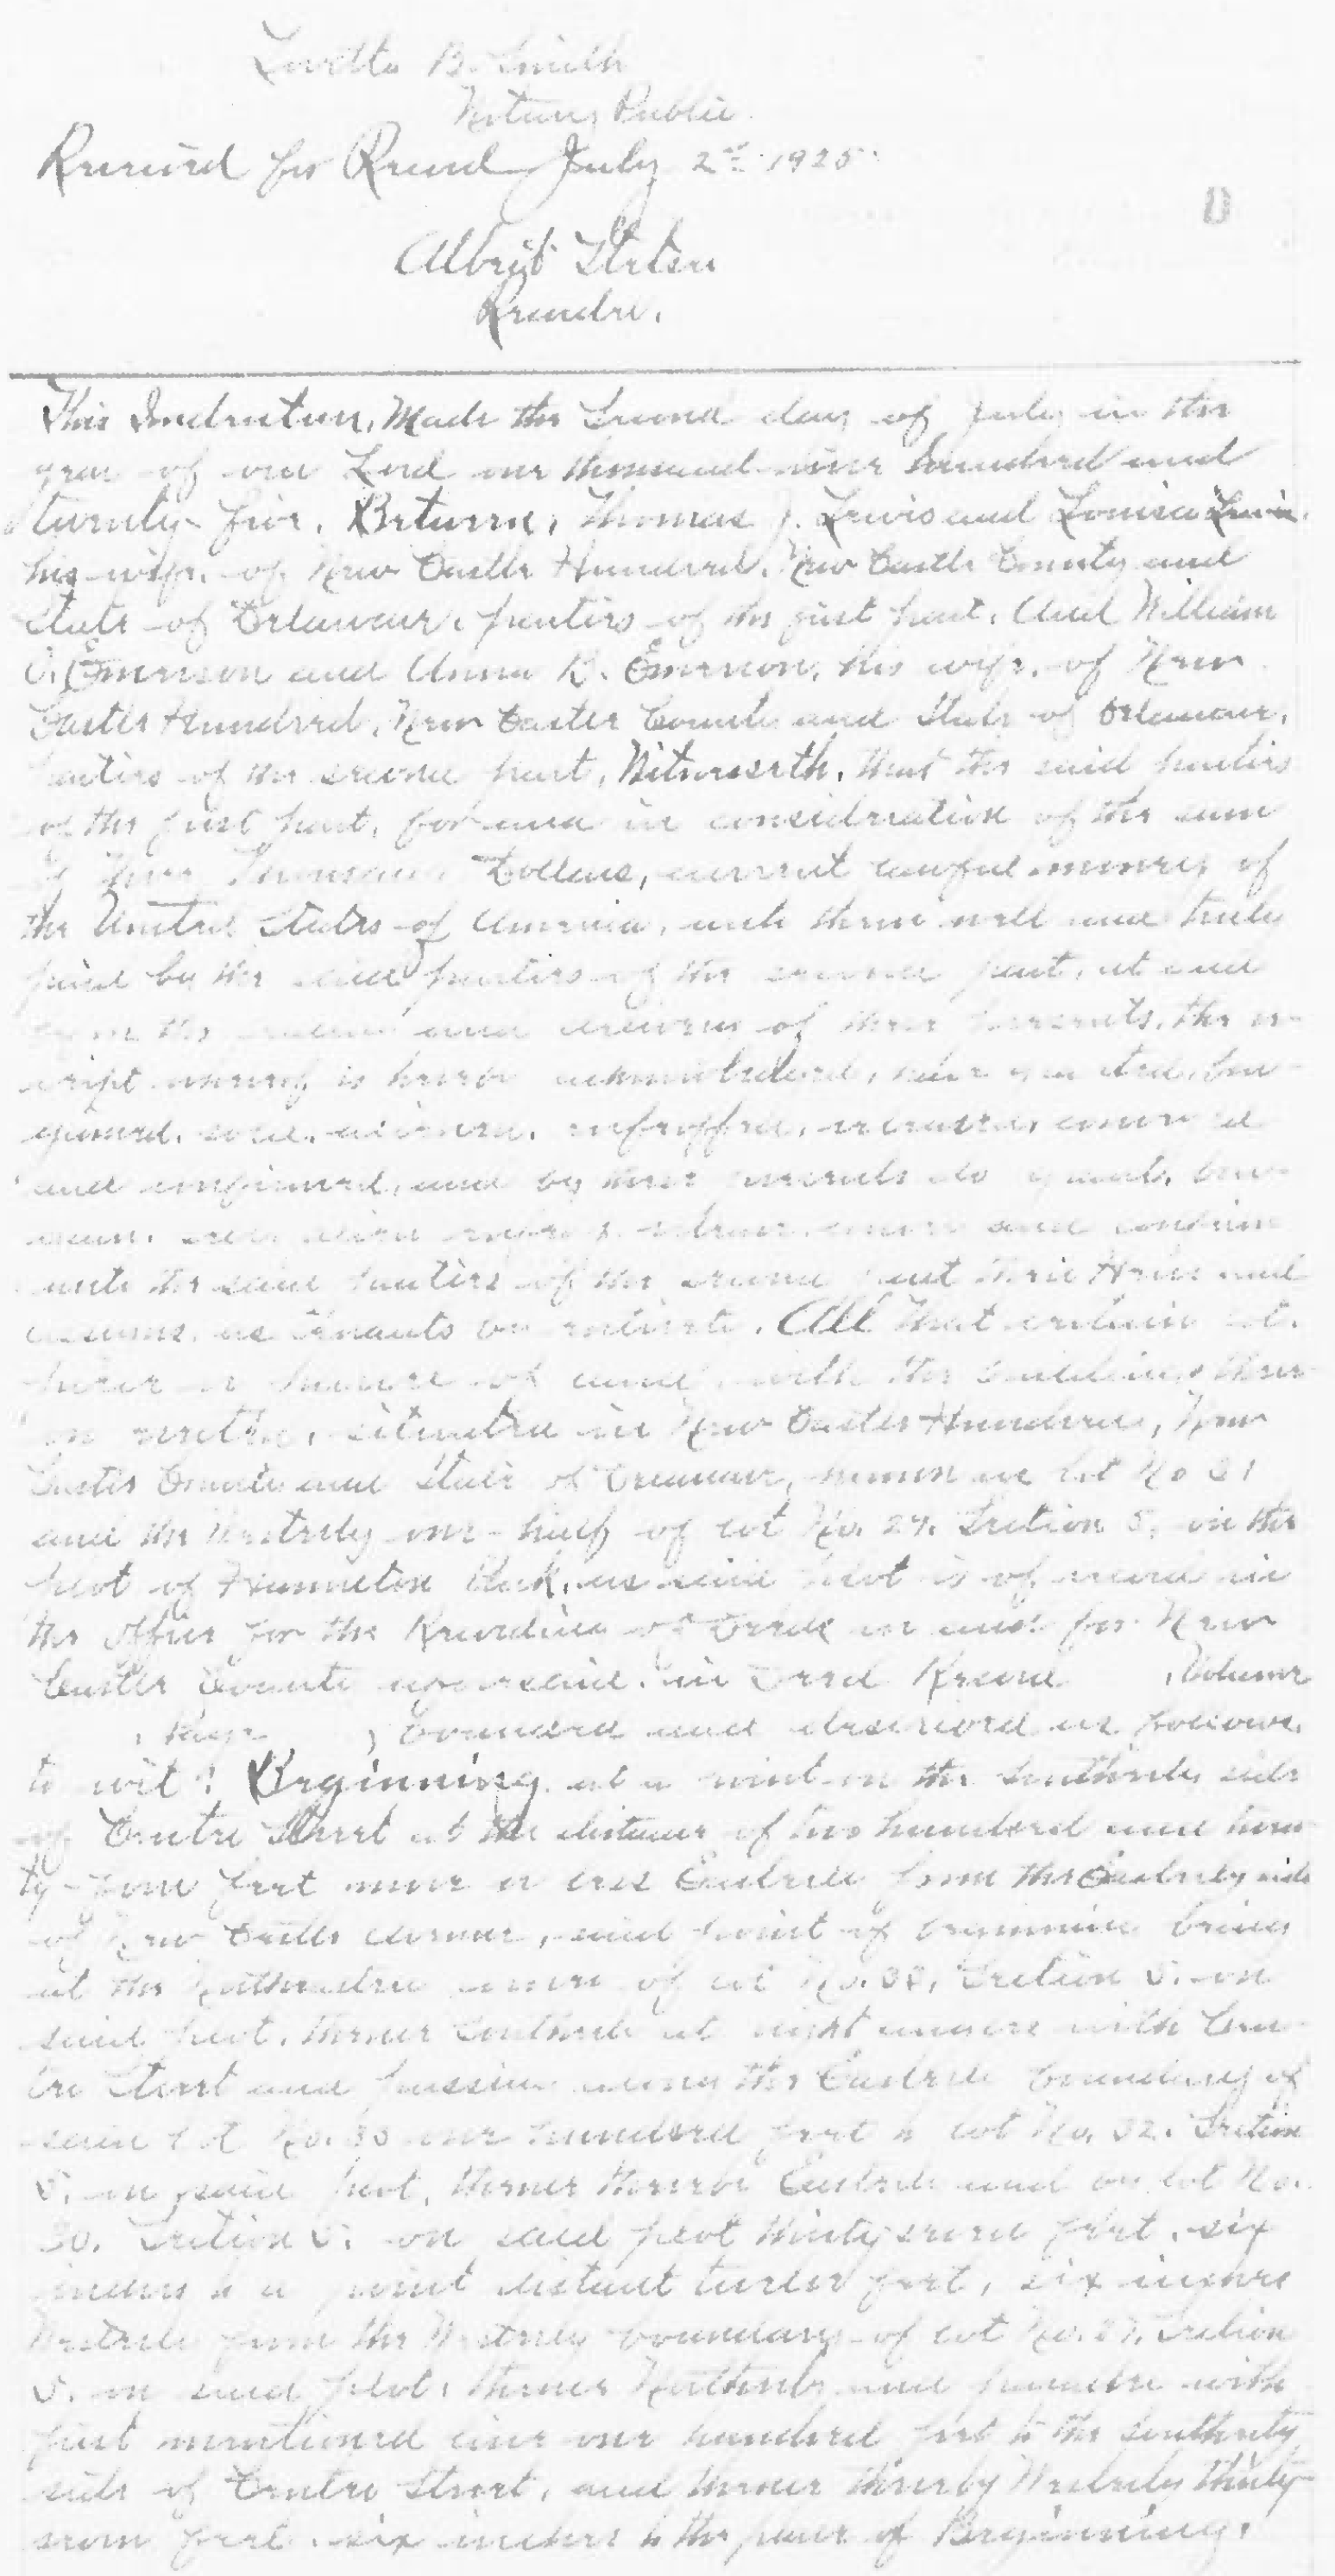 Loretta B. Smith
Notary Public.
Received for Record July 2nd 1925.
Albert Stetser
Recorder.
This Indenture, Made the Second day of July in the
year of our Lord one thousand nine hundred and
twenty-five, Between, Thomas J. Lewis and Louisa Lewis,
his wife, of New Castle Hundred, New Castle County and
State of Delaware, parties of the first part, And William
C. Emerson and Anna K. Emerson, his wife, of New
Castle Hundred, New Castle County and State of Delaware,
parties of the second part, Witnesseth, That the said parties
of the first part, for and in consideration of the sum
of Thousand Dollars, current lawful money of
the United States of America, unto them well and truly
paid by the said parties of the second part, at and
the and delivery of these presents, the re-
ceipt whereof is hereby acknowledged, have granted, bar-
gained, sold, aliened, enfeoffed, released, conveyed
and confirmed, and by these presents do grant, bar-
gain, sell, alien, enfeoff, release, convey and confirm
unto the said parties of the second part their Heirs and
assigns, as tenants by entirety, All That certain lot,
piece or parcel of land, with the buildings there-
on erected, situated in New Castle Hundred, New
Castle County and State of Delaware, known as lot No 31
and the Westerly one-half of lot No. 29, Section 5, on the
plot of Hamilton Park, as said plot is of record in
the Office for the Recording of Deeds in and for New
Castle County aforesaid, in Deed Record , Volume
, Page , bounded and described as follows,
to wit: Beginning at a point on the Southerly side
of Centre Street at the distance of two hundred and twen-
ty-four feet more or less Easterly from the Easterly side
of New Castle Avenue, said point of beginning being
at the Northeasterly corner of lot No. 33, Section 5, on
said plot, thence Southerly at right angles with Cen-
tre Street and passing along the Easterly boundary of
said lot No. 33 one hundred feet to lot No. 32, Section
5, on said plot, thence thereby Easterly and by lot No.
30, Section 5, on said plot thirty seven feet, six
inches to a point distant twelve feet, six inches
Westerly from the Westerly boundary of lot No. 27, Section
5, on said plot, thence Northerly and parallel with
first mentioned line one hundred feet to the Southerly
side of Centre Street, and thence thereby Westerly thirty-
seven feet, six inches to the place of Beginning.